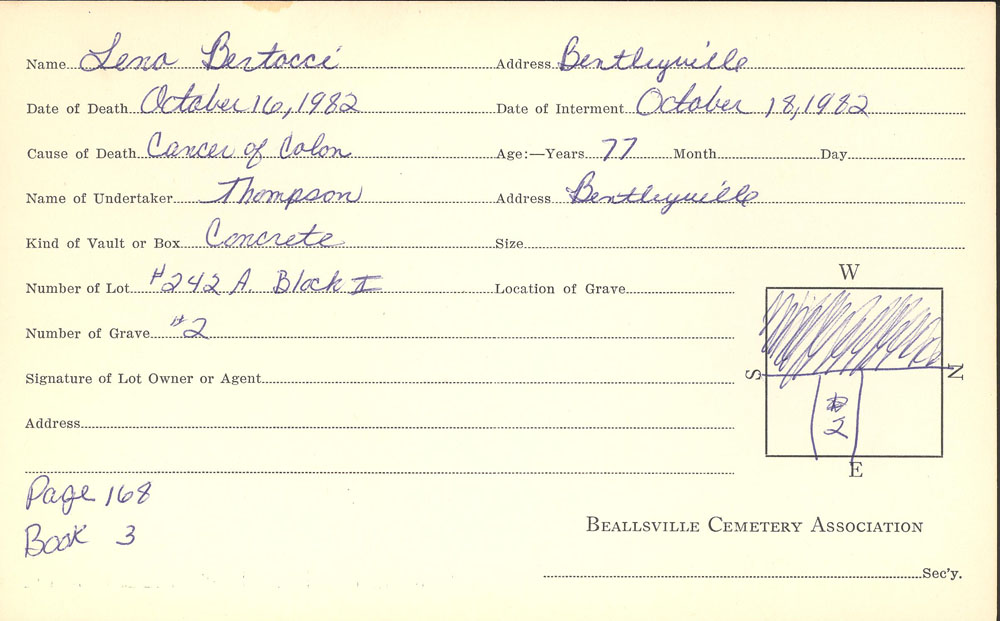 Name Lena Bertocci Address Bentleyville
Date of Death October 16, 1982 Date of Interment October 18, 1982
Cause of Death Cancer of Colon Age:—Years 77 Month Day
Name of Undertaker Thompson Address Bentleyville
Kind of Vault or Box Concrete Size
Number of Lot #242 A. Block I Location of Grave
W
Number of Grave #2
Signature of Lot Owner or Agent
S N
Address
#2
E
Page 168
Book 3
BEALLSVILLE CEMETERY ASSOCIATION
Sec'y.